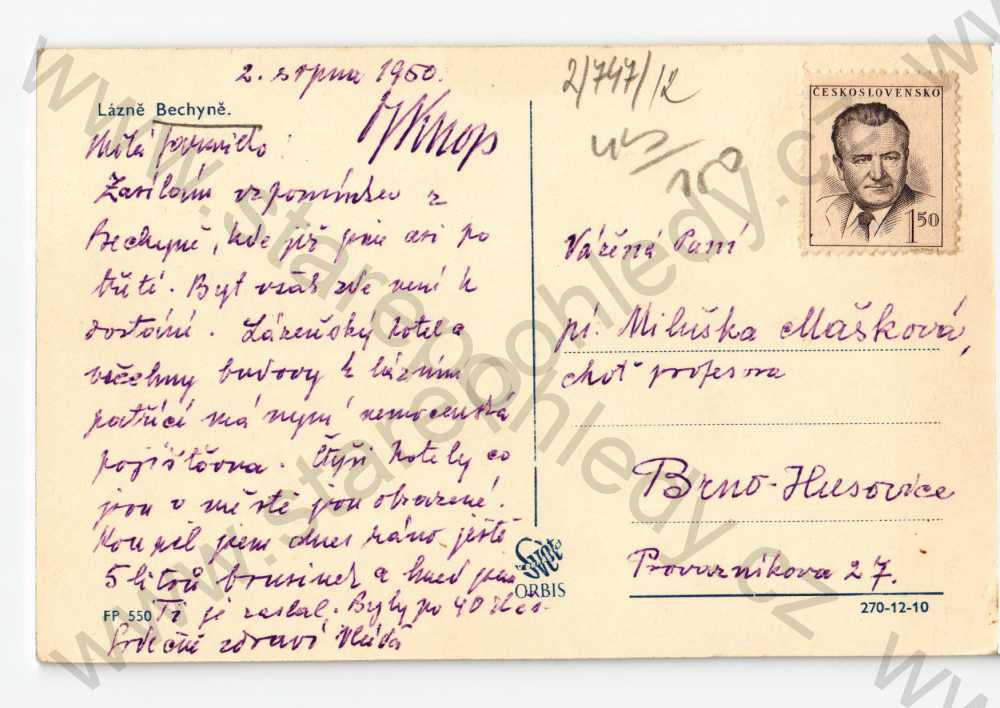 2. srpna 1950.
Lázně Bechyně.
Milá
Zasílám vzpomínku z
Bechyně, kde již jsme asi po
třetí. Byt však zde není k
dostání. Lázeňský hotel a
všechny budovy k lázním
patřící má nyní nemocenská
pojišťovna. Čtyři hotely co
jsou v městě jsou obsazené.
Koupil jsem dnes ráno ještě
5 litrů brusinek a hned jsem
Ti je zaslal. Byly po 40 Kčs.
Srdečně zdraví
FP 550
2/747/12
150
ČESKOSLOVENSKO
1 50
Vážená Paní
pí. Miluška Mašková,
choť profesora
Brno-Husovice
Provazníkova 27.
ORBIS
270-12-10
www.starepohledy.cz
www.starepohledy.cz